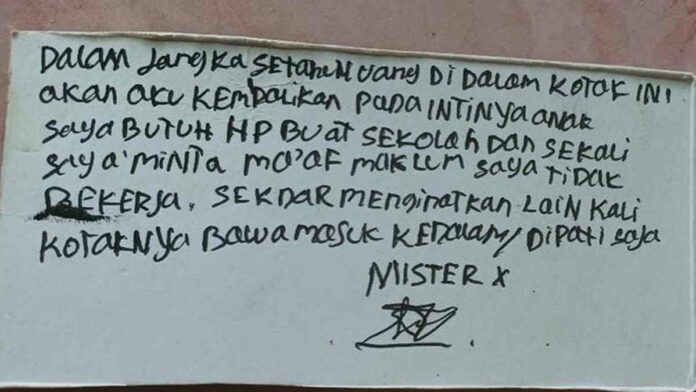 DALAM JangKa SETAHUN UANG DI DALAM KOTAK INI
AKAN AKU KEMBALIKAN PADA INTINYA ANAK
SAYA BUTUH HP BUAT SEKOLAH DAN SEKALI
SAYA MINTA MA'AF MAKLUM SAYA TIDAK
BEKERJA. SEKDAR MENGINATKAN LAIN KALI
KOTAKNYA BAWA MASUK KEDALAM/ DIPATI SAJA
MISTER X